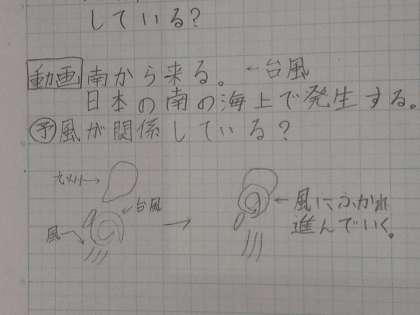 している?
動画 南から来る。 ←台風
日本の南の海上で発生する。
予 風が関係している?
九州→
←台風
風→
→
←風にふかれ
進んでいく。